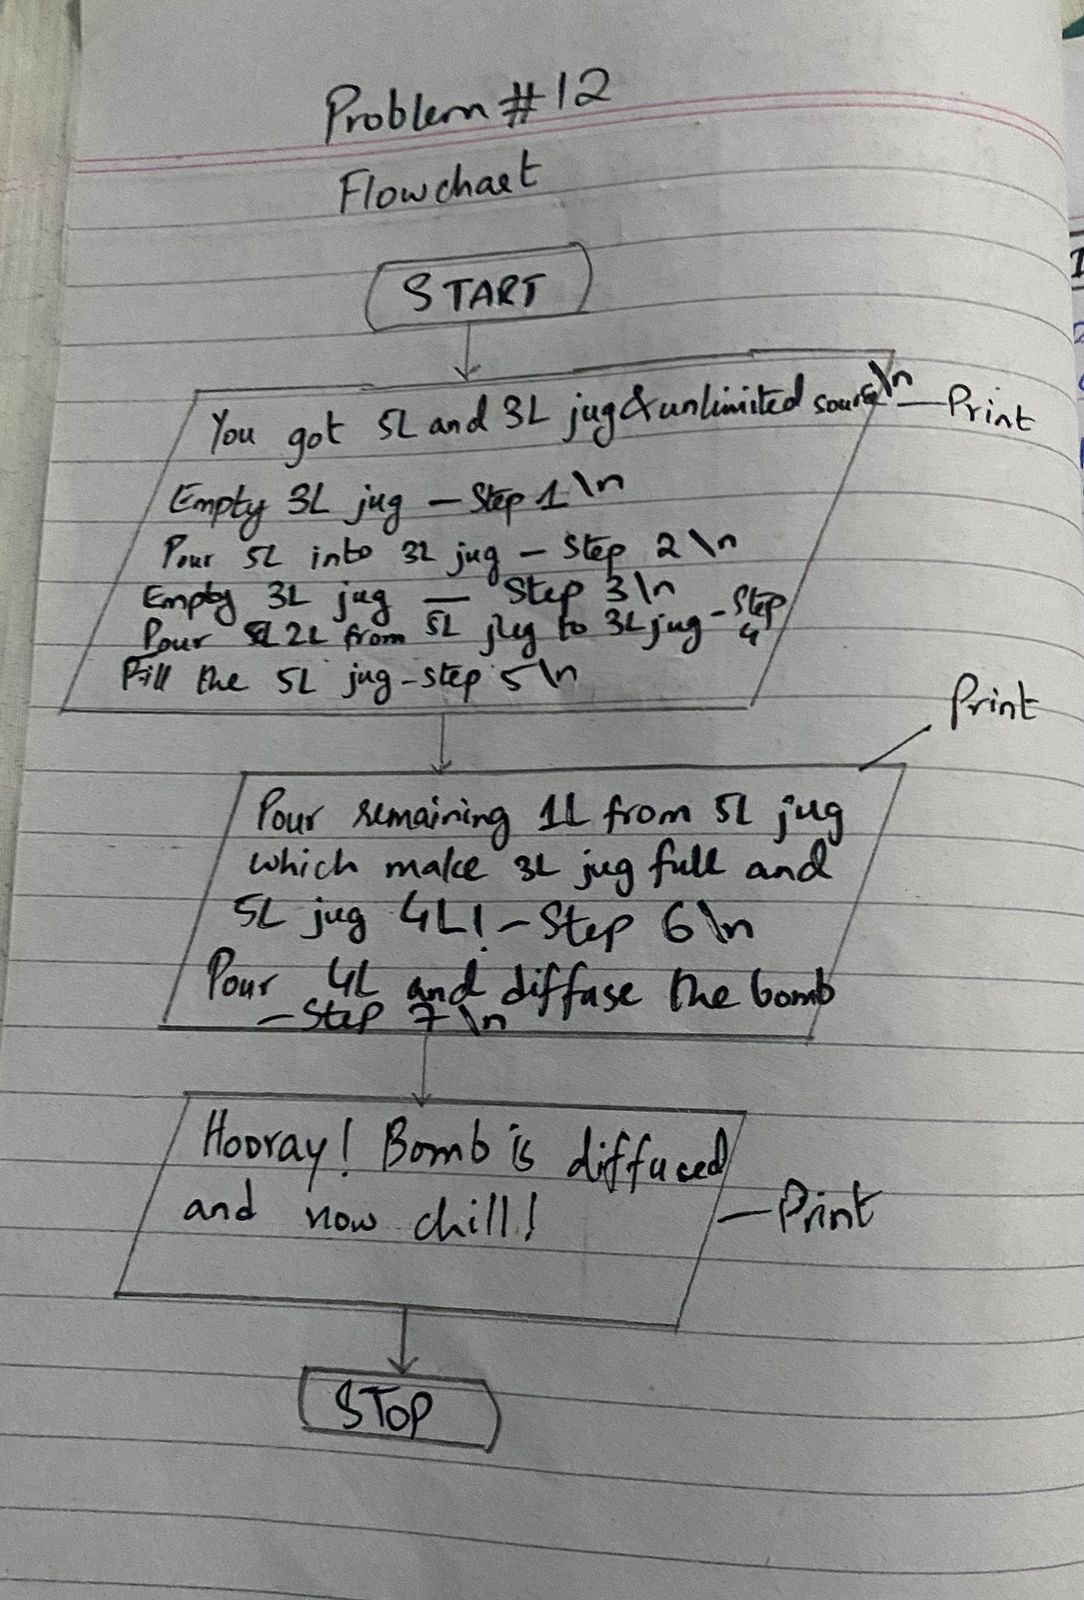 Problem #12
Flowchart
START
You got 5L and 3L jug & unlimited source \n — Print
Empty 3L jug – Step 1 \n
Pour 5L into 3L jug – Step 2 \n
Empty 3L jug — Step 3 \n
Pour 2L from 5L jug to 3L jug – Step 4
Fill the 5L jug – step 5 \n
Print
Pour remaining 1L from 5L jug
which make 3L jug full and
5L jug 4L! – Step 6 \n
Pour 4L and diffuse the bomb
– Step 7 \n
Hooray! Bomb is diffuced
and now chill!
— Print
STOP